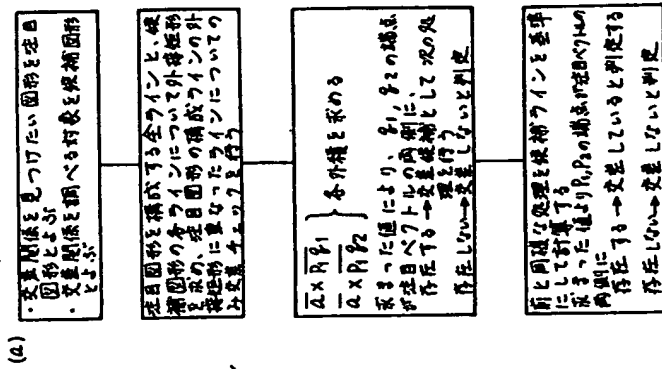 (a)
・交差関係を見つけたい図形を注目
図形とよぶ
・交差関係を調べる対象を候補図形
とよぶ
注目図形を構成する全ラインと、候
補図形の各ラインについて外接矩形
を求め、注目図形の構成ラインの外
接矩形に重なったラインについての
み交差チェックを行う
a × P₁q₁
a × P₁q₂ } 各外積を求める
求まった値により、q₁, q₂の端点
が注目ベクトルの両側に、
存在する→交差候補として次の処
理を行う
存在しない→交差しないと判定
前と同様な処理を候補ラインを基準
にして計算する
求まった値よりP₁,P₂の端点が注目ベクトルの
両側に
存在する→交差していると判定する
存在しない→交差しないと判定